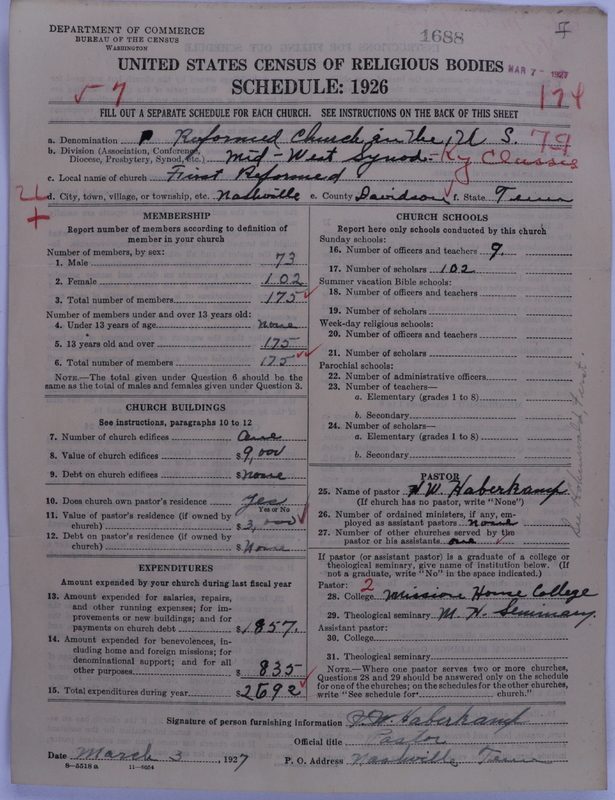 DEPARTMENT OF COMMERCE
BUREAU OF THE CENSUS
WASHINGTON
1688
UNITED STATES CENSUS OF RELIGIOUS BODIES
MAR 7 - 1927
SCHEDULE: 1926
FILL OUT A SEPARATE SCHEDULE FOR EACH CHURCH. SEE INSTRUCTIONS ON THE BACK OF THIS SHEET
a. Denomination Reformed Church in the U. S. 79
b. Division (Association, Conference, Diocese, Presbytery, Synod, etc.) Mid-West Synod - Ky Classis
c. Local name of church First Reformed
d. City, town, village, or township, etc. Nashville e. County Davidson f. State Tenn
MEMBERSHIP
Report number of members according to definition of member in your church
Number of members, by sex:
1. Male 73
2. Female 102
3. Total number of members 175
Number of members under and over 13 years old:
4. Under 13 years of age none
5. 13 years old and over 175
6. Total number of members 175
NOTE.—The total given under Question 6 should be the same as the total of males and females given under Question 3.
CHURCH BUILDINGS
See instructions, paragraphs 10 to 12
7. Number of church edifices one
8. Value of church edifices $9,000
9. Debt on church edifices $none
10. Does church own pastor's residence yes
Yes or No
11. Value of pastor's residence (if owned by church) $3,000
12. Debt on pastor's residence (if owned by church) $none
EXPENDITURES
Amount expended by your church during last fiscal year
13. Amount expended for salaries, repairs, and other running expenses; for improvements or new buildings; and for payments on church debt $1857.
14. Amount expended for benevolences, including home and foreign missions; for denominational support; and for all other purposes $835
15. Total expenditures during year $2692
CHURCH SCHOOLS
Report here only schools conducted by this church
Sunday schools:
16. Number of officers and teachers 9
17. Number of scholars 102
Summer vacation Bible schools:
18. Number of officers and teachers
19. Number of scholars
Week-day religious schools:
20. Number of officers and teachers
21. Number of scholars
Parochial schools:
22. Number of administrative officers
23. Number of teachers—
a. Elementary (grades 1 to 8)
b. Secondary
24. Number of scholars—
a. Elementary (grades 1 to 8)
b. Secondary
PASTOR
25. Name of pastor H W Haberkamp
(If church has no pastor, write "None")
26. Number of ordained ministers, if any, employed as assistant pastors none
27. Number of other churches served by the pastor or his assistants one
If pastor (or assistant pastor) is a graduate of a college or theological seminary, give name of institution below. (If not a graduate, write "No" in the space indicated.)
Pastor: 2
28. College Mission House College
29. Theological seminary M. H Seminary
Assistant pastor:
30. College
31. Theological seminary
NOTE.—Where one pastor serves two or more churches, Questions 28 and 29 should be answered only on the schedule for one of the churches; on the schedules for the other churches, write "See schedule for church."
Signature of person furnishing information H W Haberkamp
Official title Pastor
Date March 3, 1927
P. O. Address Nashville Tenn
8-5518 a 11-6254